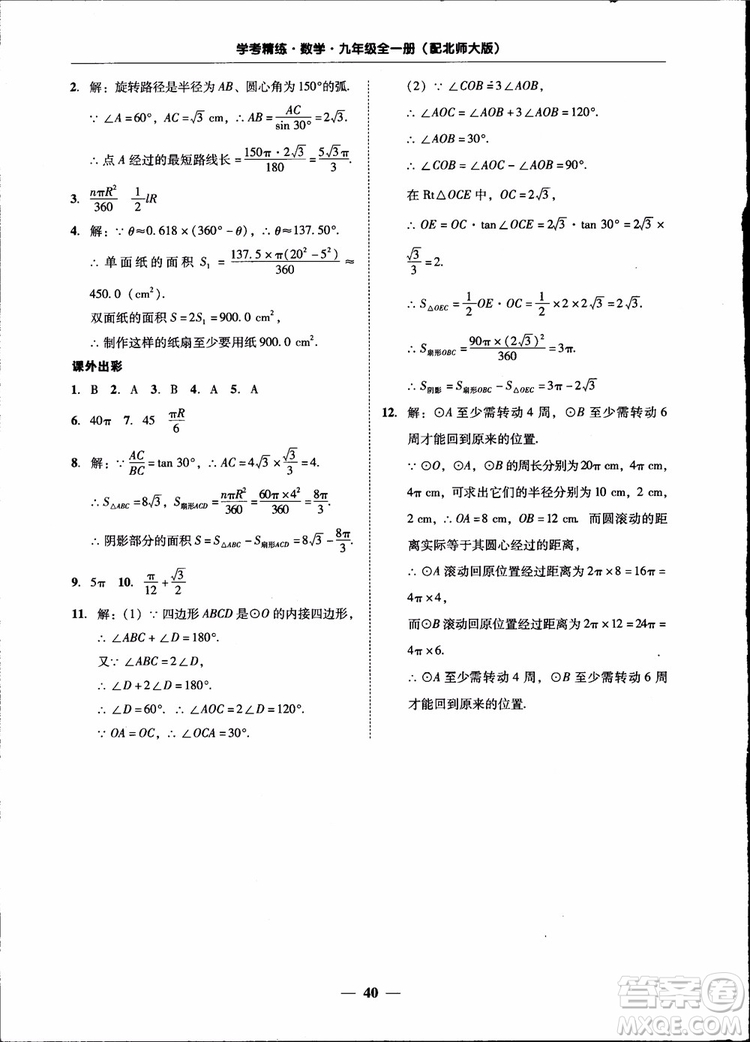 学考精练·数学·九年级全一册（配北师大版）
2. 解：旋转路径是半径为 AB、圆心角为 150°的弧.
∵ ∠A = 60°，AC = √3 cm，∴ AB = AC/sin 30° = 2√3.
∴ 点 A 经过的最短路线长 = 150π·2√3/180 = 5√3π/3.
3. nπR²/360  1/2 lR
4. 解：∵ θ≈0.618 ×（360° − θ），∴ θ≈137.50°.
∴ 单面纸的面积 S₁ = 137.5 × π(20² − 5²)/360 ≈
450.0（cm²）.
双面纸的面积 S = 2S₁ = 900.0（cm²）.
∴ 制作这样的纸扇至少要用纸 900.0 cm².
课外出彩
1. B  2. A  3. B  4. A  5. A
6. 40π  7. 45  πR/6
8. 解：∵ AC/BC = tan 30°，∴ AC = 4√3 × √3/3 = 4.
∴ S△ABC = 8√3，S扇形ACD = nπR²/360 = 60π × 4²/360 = 8π/3
∴ 阴影部分的面积 S = S△ABC − S扇形ACD = 8√3 − 8π/3.
9. 5π  10. π/12 + √3/2
11. 解：（1）∵ 四边形 ABCD 是⊙O 的内接四边形，
∴ ∠ABC + ∠D = 180°.
又∵ ∠ABC = 2∠D，
∴ ∠D + 2∠D = 180°.
∴ ∠D = 60°. ∴ ∠AOC = 2∠D = 120°.
∵ OA = OC，∴ ∠OCA = 30°.
（2）∵ ∠COB = 3∠AOB，
∴ ∠AOC = ∠AOB + 3∠AOB = 120°.
∴ ∠AOB = 30°.
∴ ∠COB = ∠AOC − ∠AOB = 90°.
在 Rt△OCE 中，OC = 2√3，
∴ OE = OC·tan∠OCE = 2√3·tan 30° = 2√3 ×
√3/3 = 2.
∴ S△OEC = 1/2 OE·OC = 1/2 × 2 × 2√3 = 2√3.
∴ S扇形OBC = 90π × (2√3)²/360 = 3π.
∴ S阴影 = S扇形OBC − S△OEC = 3π − 2√3.
12. 解：⊙A 至少需转动 4 周，⊙B 至少需转动 6
周才能回到原来的位置.
∵ ⊙O、⊙A、⊙B 的周长分别为 20π cm，4π cm，
4π cm，可求出它们的半径分别为 10 cm，2 cm，
2 cm，∴ OA = 8 cm，OB = 12 cm. 而圆滚动的
距离实际等于其圆心经过的距离，
∴ ⊙A 滚动回原位置应转动 2π × 8 = 16π =
4π × 4，
而⊙B 滚动回原位置应转动 2π × 12 = 24π =
4π × 6.
∴ ⊙A 至少需转动 4 周，⊙B 至少需转动 6 周
才能回到原来的位置.
— 40 —
答案圈
MXQE.COM